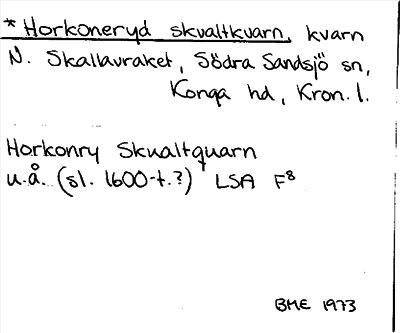 * Horkoneryd skvaltkvarn, kvarn
N. Skallavraket, Södra Sandsjö sn,
Konga hd, Kron. l.
Horkonry Skualtquarn
u.å. (sl. 1600-t.?) LSA F8
BME 1973